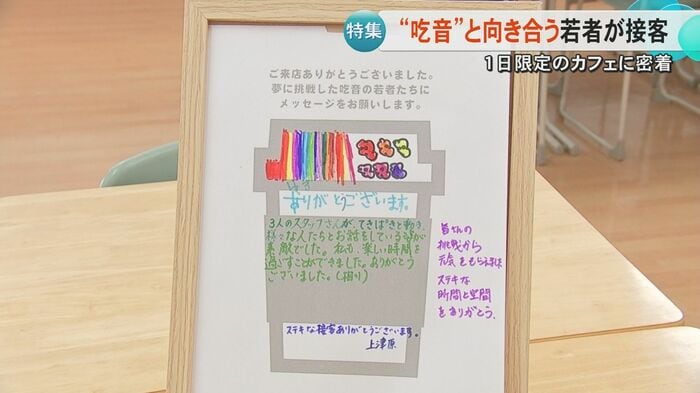 特集
“吃音”と向き合う若者が接客
1日限定のカフェに密着
ご来店ありがとうございました。
夢に挑戦した吃音の若者たちに
メッセージをお願いします。
ありがとうございます。
3人のスタッフさんが、てきぱきと動き、
様々な人たちとお話をしている姿が
素敵でした。私も、楽しい時間を
過ごすことができました。ありがとう
ございました。
皆さんの
挑戦から
元気をもらえました
ステキな
時間と空間
をありがとう。
ステキな接客ありがとうございます。
上津原